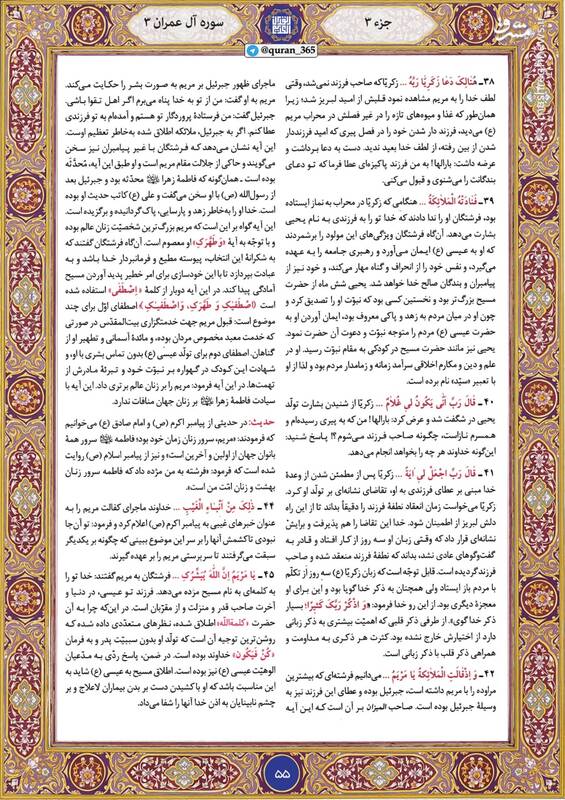 جزء ۳
سوره آل عمران ۳
@quran_365
مشرق
۳۸ـ هُنالِکَ دَعا زَکَرِیّا رَبَّهُ ... زکریّا که صاحب فرزند نمی‌شد، وقتی
لطف خدا را به مریم مشاهده نمود قلبش از امید لبریز شد؛ زیرا
همان‌طور که غذا و میوه‌های تازه را در غیر فصلش در محراب مریم
(ع) می‌دید، فرزند دار شدن خود را در فصل پیری که امید فرزنددار
شدن از بین رفته، از لطف خدا بعید ندید. دست به دعا برداشت و
عرضه داشت: بارالها! به من فرزند پاکیزه‌ای عطا فرما که تو دعای
بندگانت را می‌شنوی و قبول می‌کنی.
۳۹ـ فَنادَتْهُ الْمَلائِکَةُ ... هنگامی که زکریّا در محراب به نماز ایستاده
بود، فرشتگان او را ندا دادند که خدا تو را به فرزندی به نام یحیی
بشارت می‌دهد. آن‌گاه فرشتگان ویژگی‌های این مولود را برشمردند
که او به عیسی (ع) ایمان می‌آورد و رهبری جامعه را به عهده
می‌گیرد، و نفس خود را از انحراف و گناه مهار می‌کند، و خود نیز از
پیامبران و بندگان صالح خدا خواهد شد. یحیی شش ماه از حضرت
مسیح بزرگ‌تر بود و نخستین کسی بود که نبوّت او را تصدیق کرد و
چون او در میان مردم به زهد و پاکی معروف بود، ایمان آوردن او به
حضرت عیسی (ع) مردم را متوجه نبوّت و دعوت آن حضرت نمود.
یحیی نیز مانند حضرت مسیح در کودکی به مقام نبوّت رسید. او در
علم و دین و مکارم اخلاقی سرآمد زمانه و زمامدار مردم بود و لذا از او
با تعبیر «سیّد» نام برده است.
۴۰ـ قالَ رَبِّ أَنّی یَکُونُ لی غُلامٌ ... زکریّا از شنیدن بشارت تولّد
یحیی در شگفت شد و عرض کرد: بارالها! من که به پیری رسیده‌ام و
همسرم نازاست، چگونه صاحب فرزند می‌شوم؟! پاسخ شنید:
این‌گونه خداوند هر چه را بخواهد انجام می‌دهد.
۴۱ـ قالَ رَبِّ اجْعَلْ لی آیَةً ... زکریّا پس از مطمئن شدن از وعدۀ
خدا مبنی بر عطای فرزندی به او، تقاضای نشانه‌ای بر تولّد او کرد.
زکریّا می‌خواست زمان انعقاد نطفۀ فرزند را دقیقاً بداند تا از این راه
دلش لبریز از اطمینان شود. خدا این تقاضا را هم پذیرفت و برایش
نشانه‌ای قرار داد که وقتی زبان او سه روز از کار افتاد و قادر به
گفت‌وگوهای عادی نشد، بداند که نطفۀ فرزند منعقد شده و صاحب
فرزند گردیده است. قابل توجّه است که زبان زکریّا (ع) سه روز از تکلّم
با مردم باز ایستاد ولی همچنان به ذکر خدا گویا بود و این برای او
معجزۀ دیگری بود. از این رو خدا فرمود: «وَ اذْکُرْ رَبَّکَ کَثیراً؛ بسیار
ذکر خدا گوی». از طرفی ذکر قلبی که اهمیّت بیشتری به ذکر زبانی
دارد از اختیارش خارج نشده بود. کثرت هر ذکری به مداومت و
همراهی ذکر قلب با ذکر زبانی است.
۴۲ـ وَ اِذْ قالَتِ الْمَلائِکَةُ یا مَرْیَمُ ... می‌دانیم فرشته‌ای که بیشترین
مراوده را با مریم داشته است، جبرئیل بوده و عطای این فرزند نیز به
وسیلۀ جبرئیل بوده است. صاحب المیزان بر آن است که این آیه
ماجرای ظهور جبرئیل بر مریم به صورت بشر را حکایت می‌کند.
مریم به او گفت: من از تو به خدا پناه می‌برم اگر اهل تقوا باشی.
جبرئیل گفت: من فرستادۀ پروردگار تو هستم و آمده‌ام به تو فرزندی
عطا کنم. اگر به جبرئیل، ملائکه اطلاق شده به‌خاطر تعظیم اوست.
این آیه نشان می‌دهد که فرشتگان با غیر پیامبران نیز سخن
می‌گویند و حاکی از جلالت مقام مریم است و او طبق این آیه، مُحدَّثه
بوده است ـ همان‌گونه که فاطمۀ زهرا محدّثه بود و جبرئیل بعد
از رسول‌الله (ص) با او سخن می‌گفت و علی (ع) کاتب حدیث او بوده
است. خدا او را به‌خاطر زهد و پارسایی، پاک گردانیده و برگزیده است.
این آیه گواه بر این است که مریم بزرگ ترین شخصیّت زنان عالم بوده
و با توجّه به آیۀ «وَطَهَّرَکِ» او معصوم است. آن‌گاه فرشتگان گفتند که
به شکرانۀ این انتخاب، پیوسته مطیع و فرمانبردار خدا باشد و به
عبادت بپردازد تا با این خودسازی برای امر خطیر پدید آوردن مسیح
آمادگی پیدا کند. در این آیه دوبار از کلمۀ «اِصْطَفی» استفاده شده
است (اصْطَفیکِ وَ طَهَّرَکِ، وَاصْطَفیکِ) اصطفای اوّل برای چند
موضوع است: قبول مریم جهت خدمتگزاری بیت‌المقدّس در صورتی
که خدمت معبد مخصوص مردان بوده، و مائدۀ آسمانی و تطهیر او از
گناهان. اصطفای دوم برای تولّد عیسی (ع) بدون تماس بشری با او، و
شهادت این کودک در گهواره بر نبوّت خود و تبرئۀ مادرش از
تهمت‌ها. در این آیه فرمود: مریم را بر زنان عالم برتری داد. این آیه با
سیادت فاطمۀ زهرا بر زنان جهان منافات ندارد.
حدیث: در حدیثی از پیامبر اکرم (ص) و امام صادق (ع) می‌خوانیم
که فرمودند: «مریم، سرور زنان زمان خود بود؛ فاطمه سرور همۀ
بانوان جهان از اولین و آخرین است»، و نیز از پیامبر اسلام (ص) روایت
شده است که فرمود: «فرشته به من مژده داد که فاطمه سرور زنان
بهشت و زنان امّت من است».
۴۴ـ ذلِکَ مِنْ اَنْباءِ الْغَیْبِ ... خداوند ماجرای کفالت مریم را به
عنوان خبرهای غیبی به پیامبر اکرم (ص) اعلام کرد و فرمود: تو آن‌جا
نبودی تا کشمش آنها را بر سر این موضوع ببینی که چگونه بر یکدیگر
سبقت می‌گرفتند تا سرپرستی مریم را بر عهده گیرند.
۴۵ـ یا مَرْیَمُ اِنَّ اللهَ یُبَشِّرُکِ ... فرشتگان به مریم گفتند: خدا تو را
به کلمه‌ای به نام مسیح مژده می‌دهد. فرزند تو عیسی، در دنیا و
آخرت صاحب قدر و منزلت و از مقرّبان است. در این‌که چرا به آن
حضرت «کلمةاللّه» اطلاق شده، نظرهای متعدّدی داده شده که
روشن‌ترین توجیه آن است که تولّد او بدون سببیّت پدر و به فرمان
«کُنْ فَیَکُون» خداوند بوده است. در ضمن، پاسخ ردّی به مدّعیان
الوهیّت عیسی (ع) نیز بوده است. اطلاق مسیح به عیسی (ع) شاید به
این مناسبت باشد که او با کشیدن دست بر بدن بیماران لاعلاج و بر
چشم نابینایان به اذن خدا آنها را شفا می‌داد.
۵۵